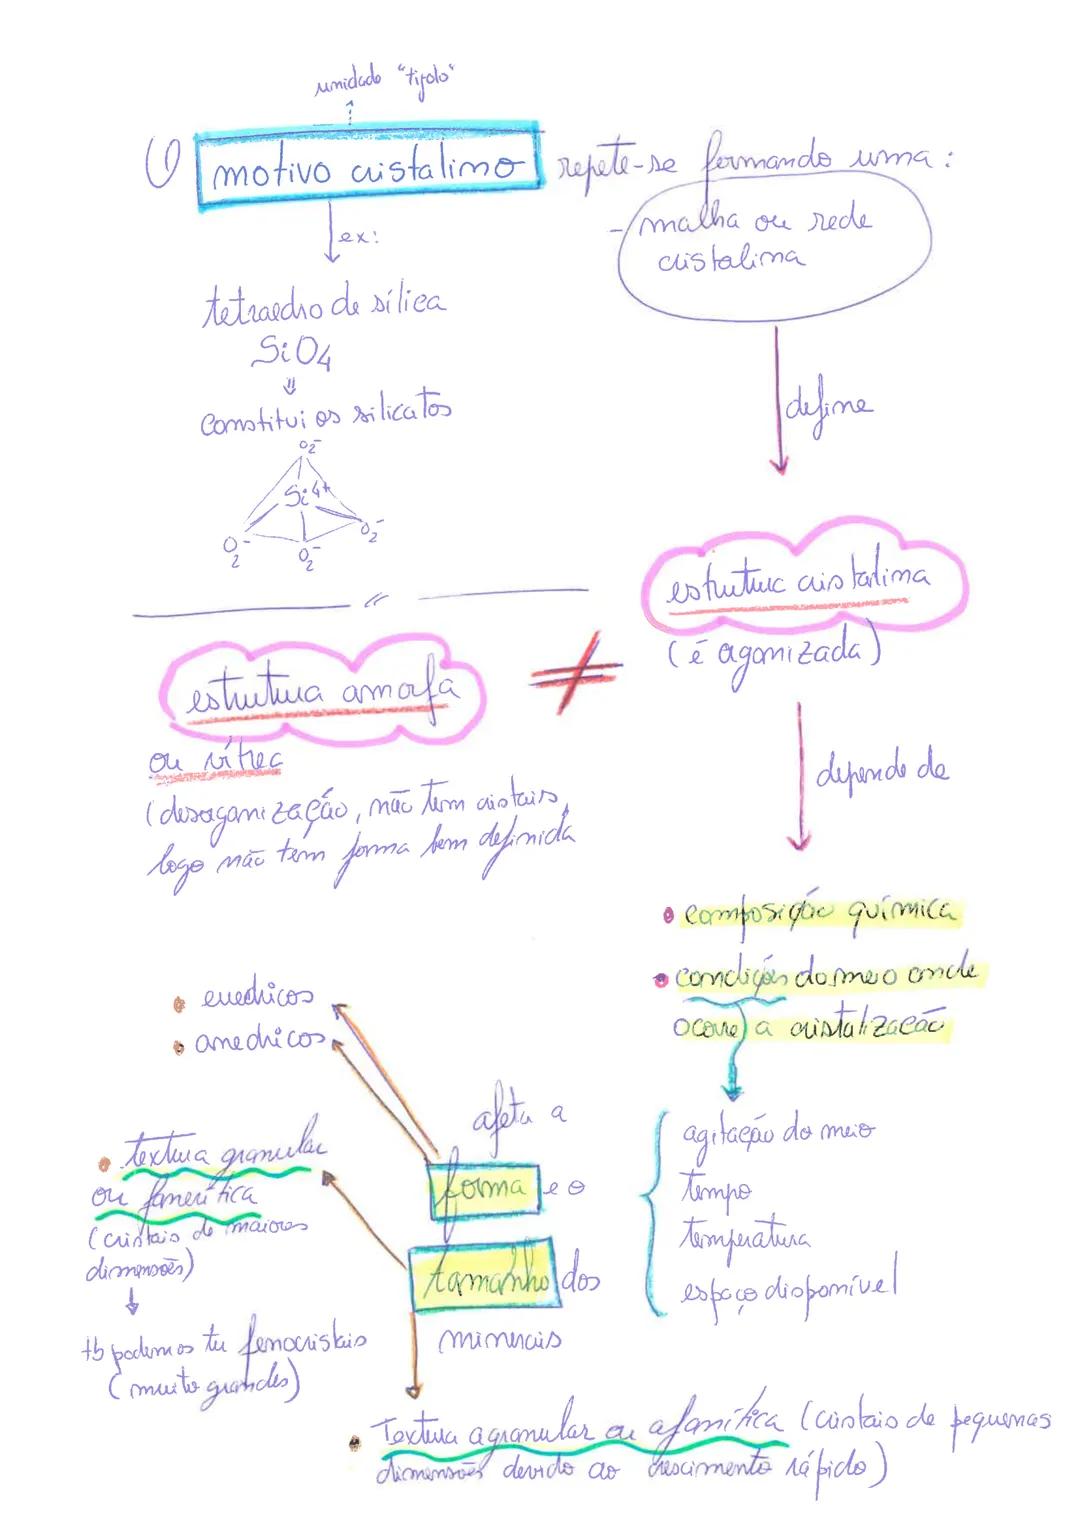 unidade "tijolo"
motivo cristalino repete-se formando uma:
- malha ou rede
cristalina
ex:
tetraedro de sílica
SiO4
⇓
Constitui os silicatos
O2-
Si4+
O2-
O2-
O2-
define
estrutura cristalina
(é organizada)
≠
estrutura amorfa
ou vítrea
(desorganização, não tem cristais,
logo não tem forma bem definida
depende de
• composição química
• condições do meio onde
ocorre a cristalização
agitação do meio
tempo
temperatura
espaço disponível
afeta a
forma e o
tamanho dos
minerais
• euedricos
• anedricos
• textura granular
ou fanerítica
(cristais de maiores
dimensões)
tb podemos ter fenocristais
(muito grandes)
• Textura agranular ou afanítica (cristais de pequenas
dimensões devido ao crescimento rápido)